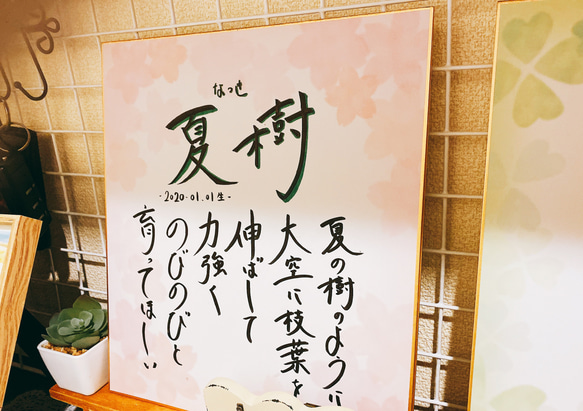 なつき
夏樹
-2020.01.01生-
夏の樹のように
大空に枝葉を
伸ばして
力強く
のびのびと
育ってほしい